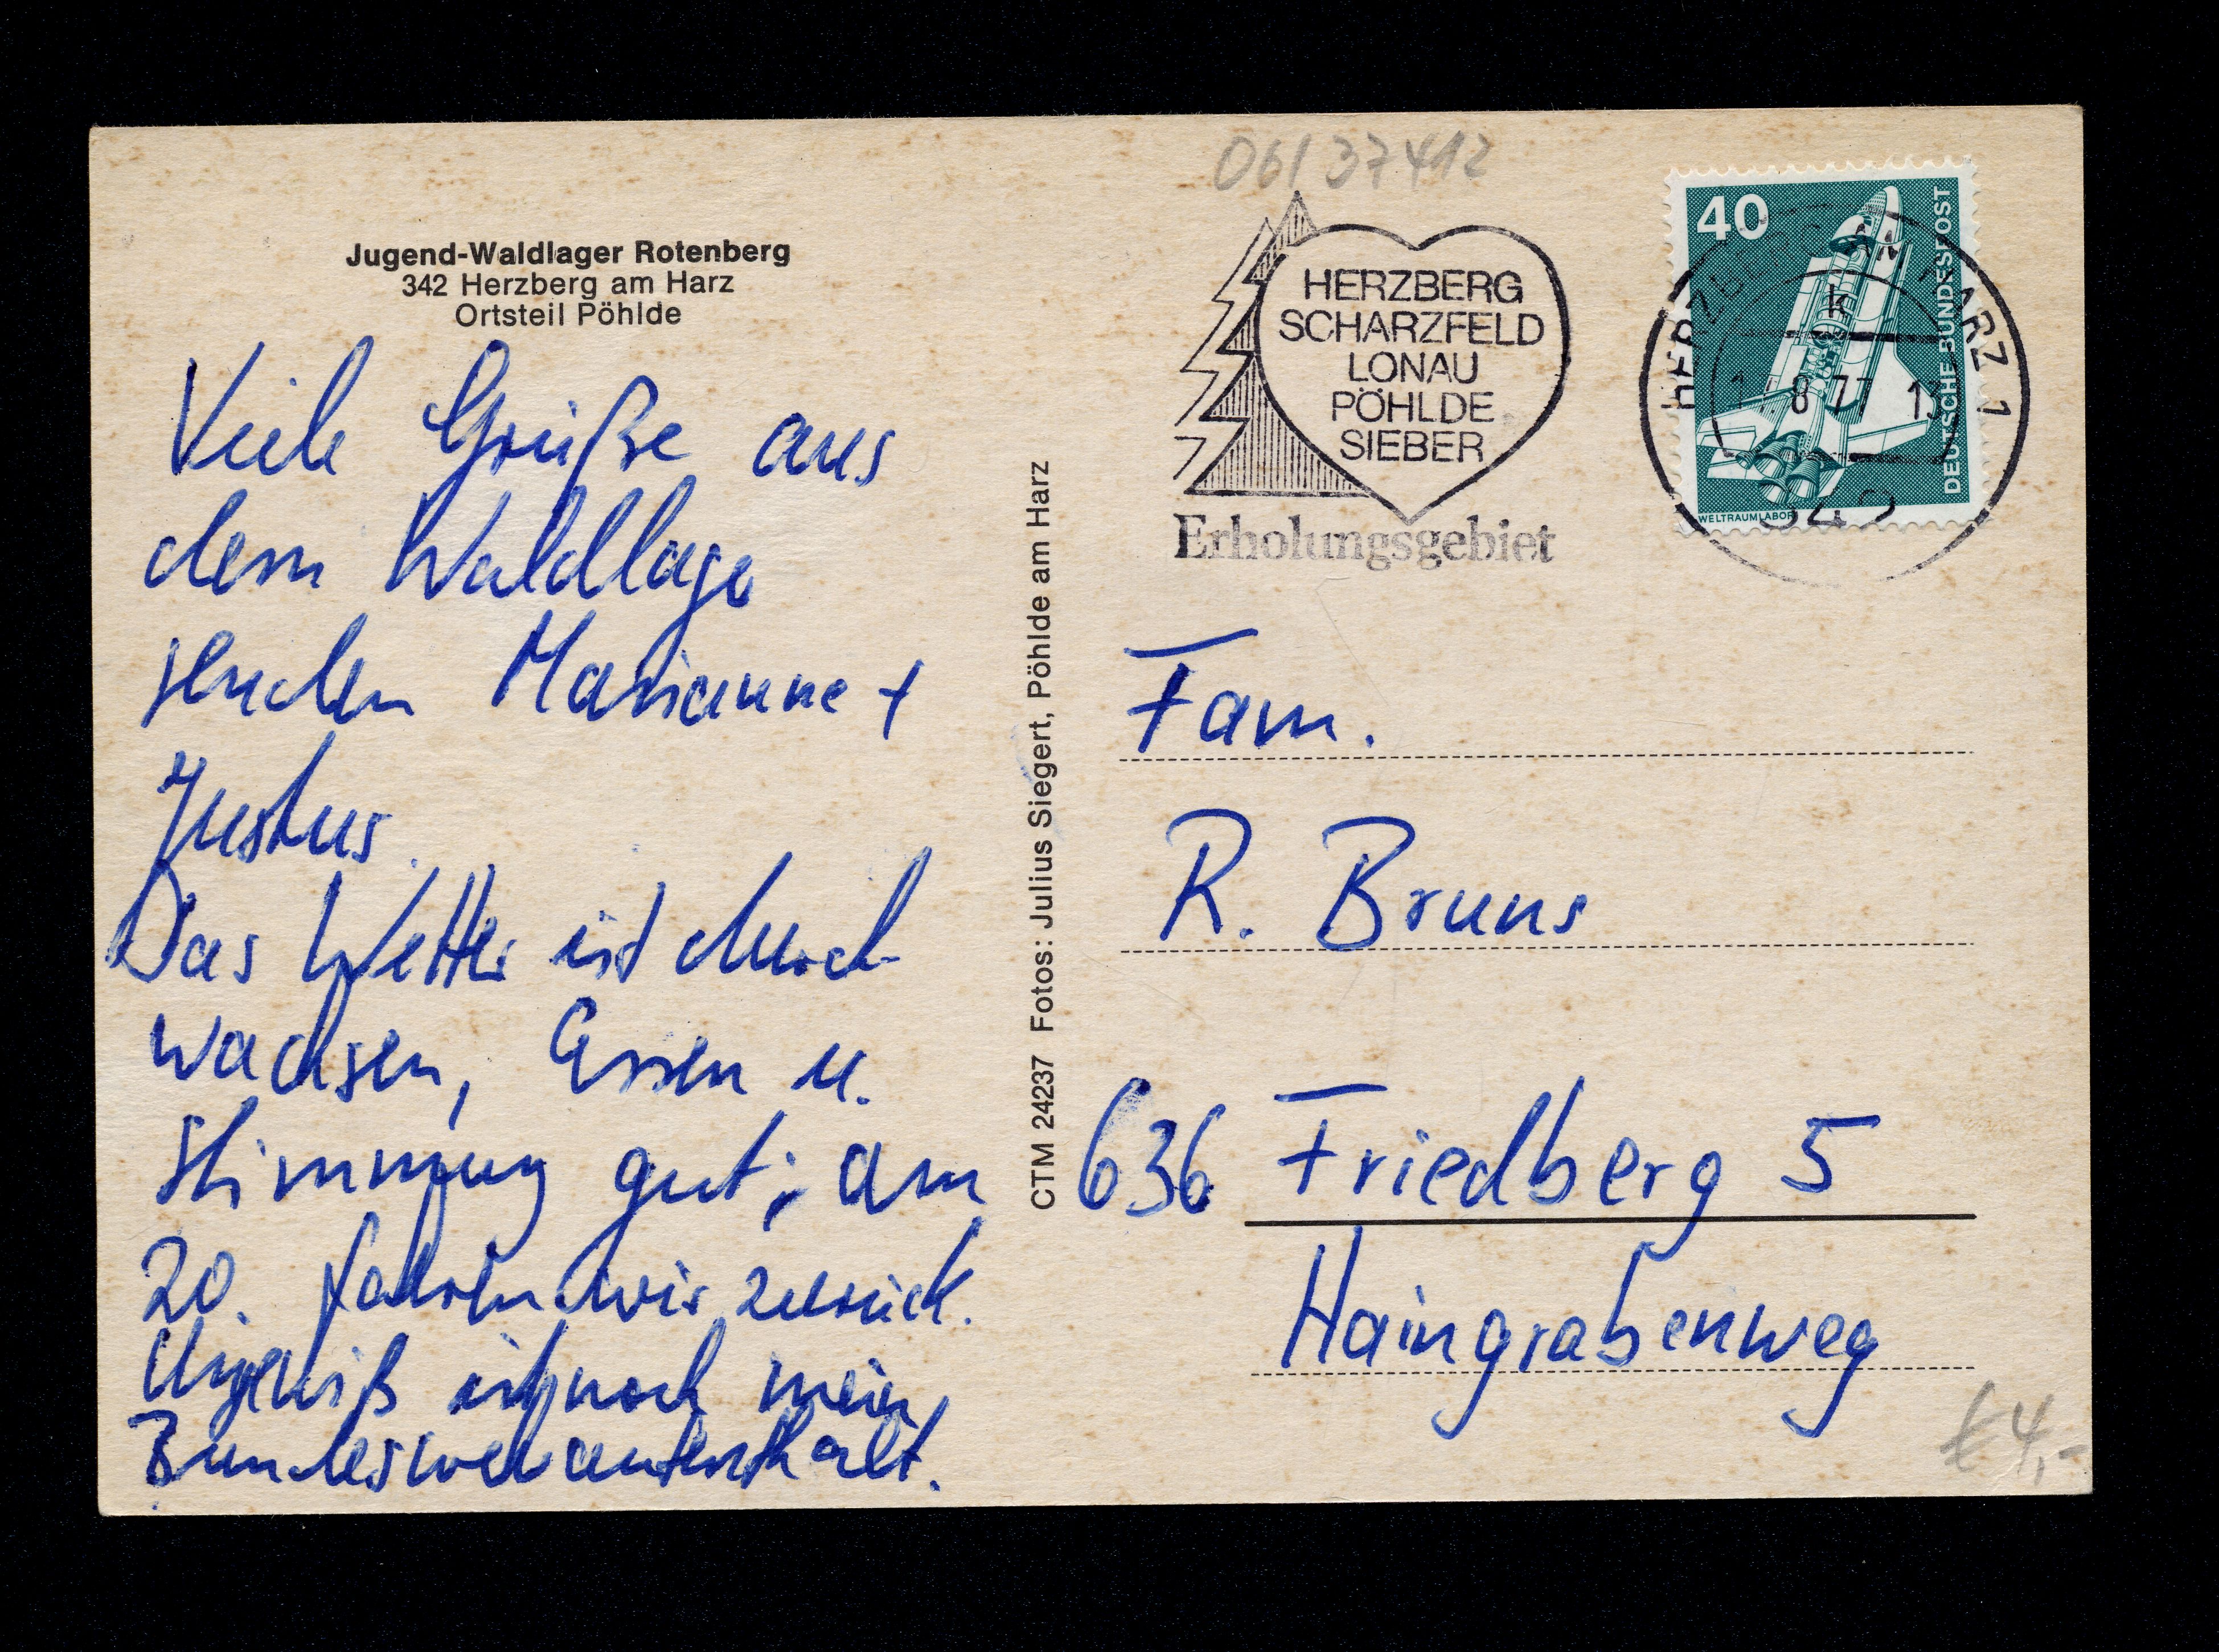 Jugend-Waldlager Rotenberg
342 Herzberg am Harz
Ortsteil Pöhlde
Viele Grüße aus
dem Waldlager
senden Marianne +
Justus.
Das Wetter ist durch-
wachsen, Essen u.
Stimmung gut; am
20. fahren wir zurück.
Ungewiß ist noch mein
Bundeswehraufenthalt.
CTM 24237 Fotos: Julius Siegert, Pöhlde am Harz
06137412
HERZBERG
SCHARZFELD
LONAU
PÖHLDE
SIEBER
Erholungsgebiet
40
DEUTSCHE BUNDESPOST
WELTRAUMLABOR
HERZBERG AM HARZ 1
k
8 77 13
342
Fam.
R. Bruns
636 Friedberg 5
Haingrabenweg
€ 4,-